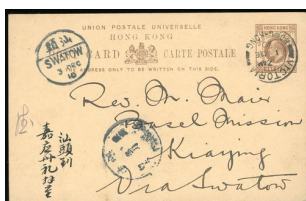 UNION POSTALE UNIVERSELLE
HONG KONG
CARD CARTE POSTALE
ADDRESS ONLY TO BE WRITTEN ON THIS SIDE.
SWATOW
3 DEC
VICTORIA
HONG-KONG
Rev. M. Maier
Basel Mission
Kiaying
Via Swatow
汕頭到
嘉應州